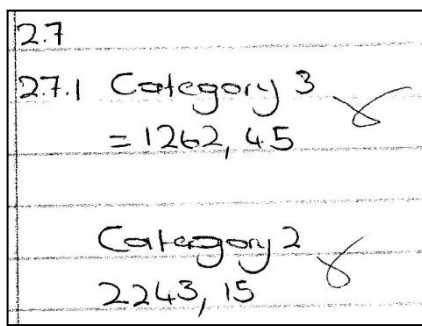 2.7
2.7.1 Category 3
= 1262,45
Category 2
2243,15